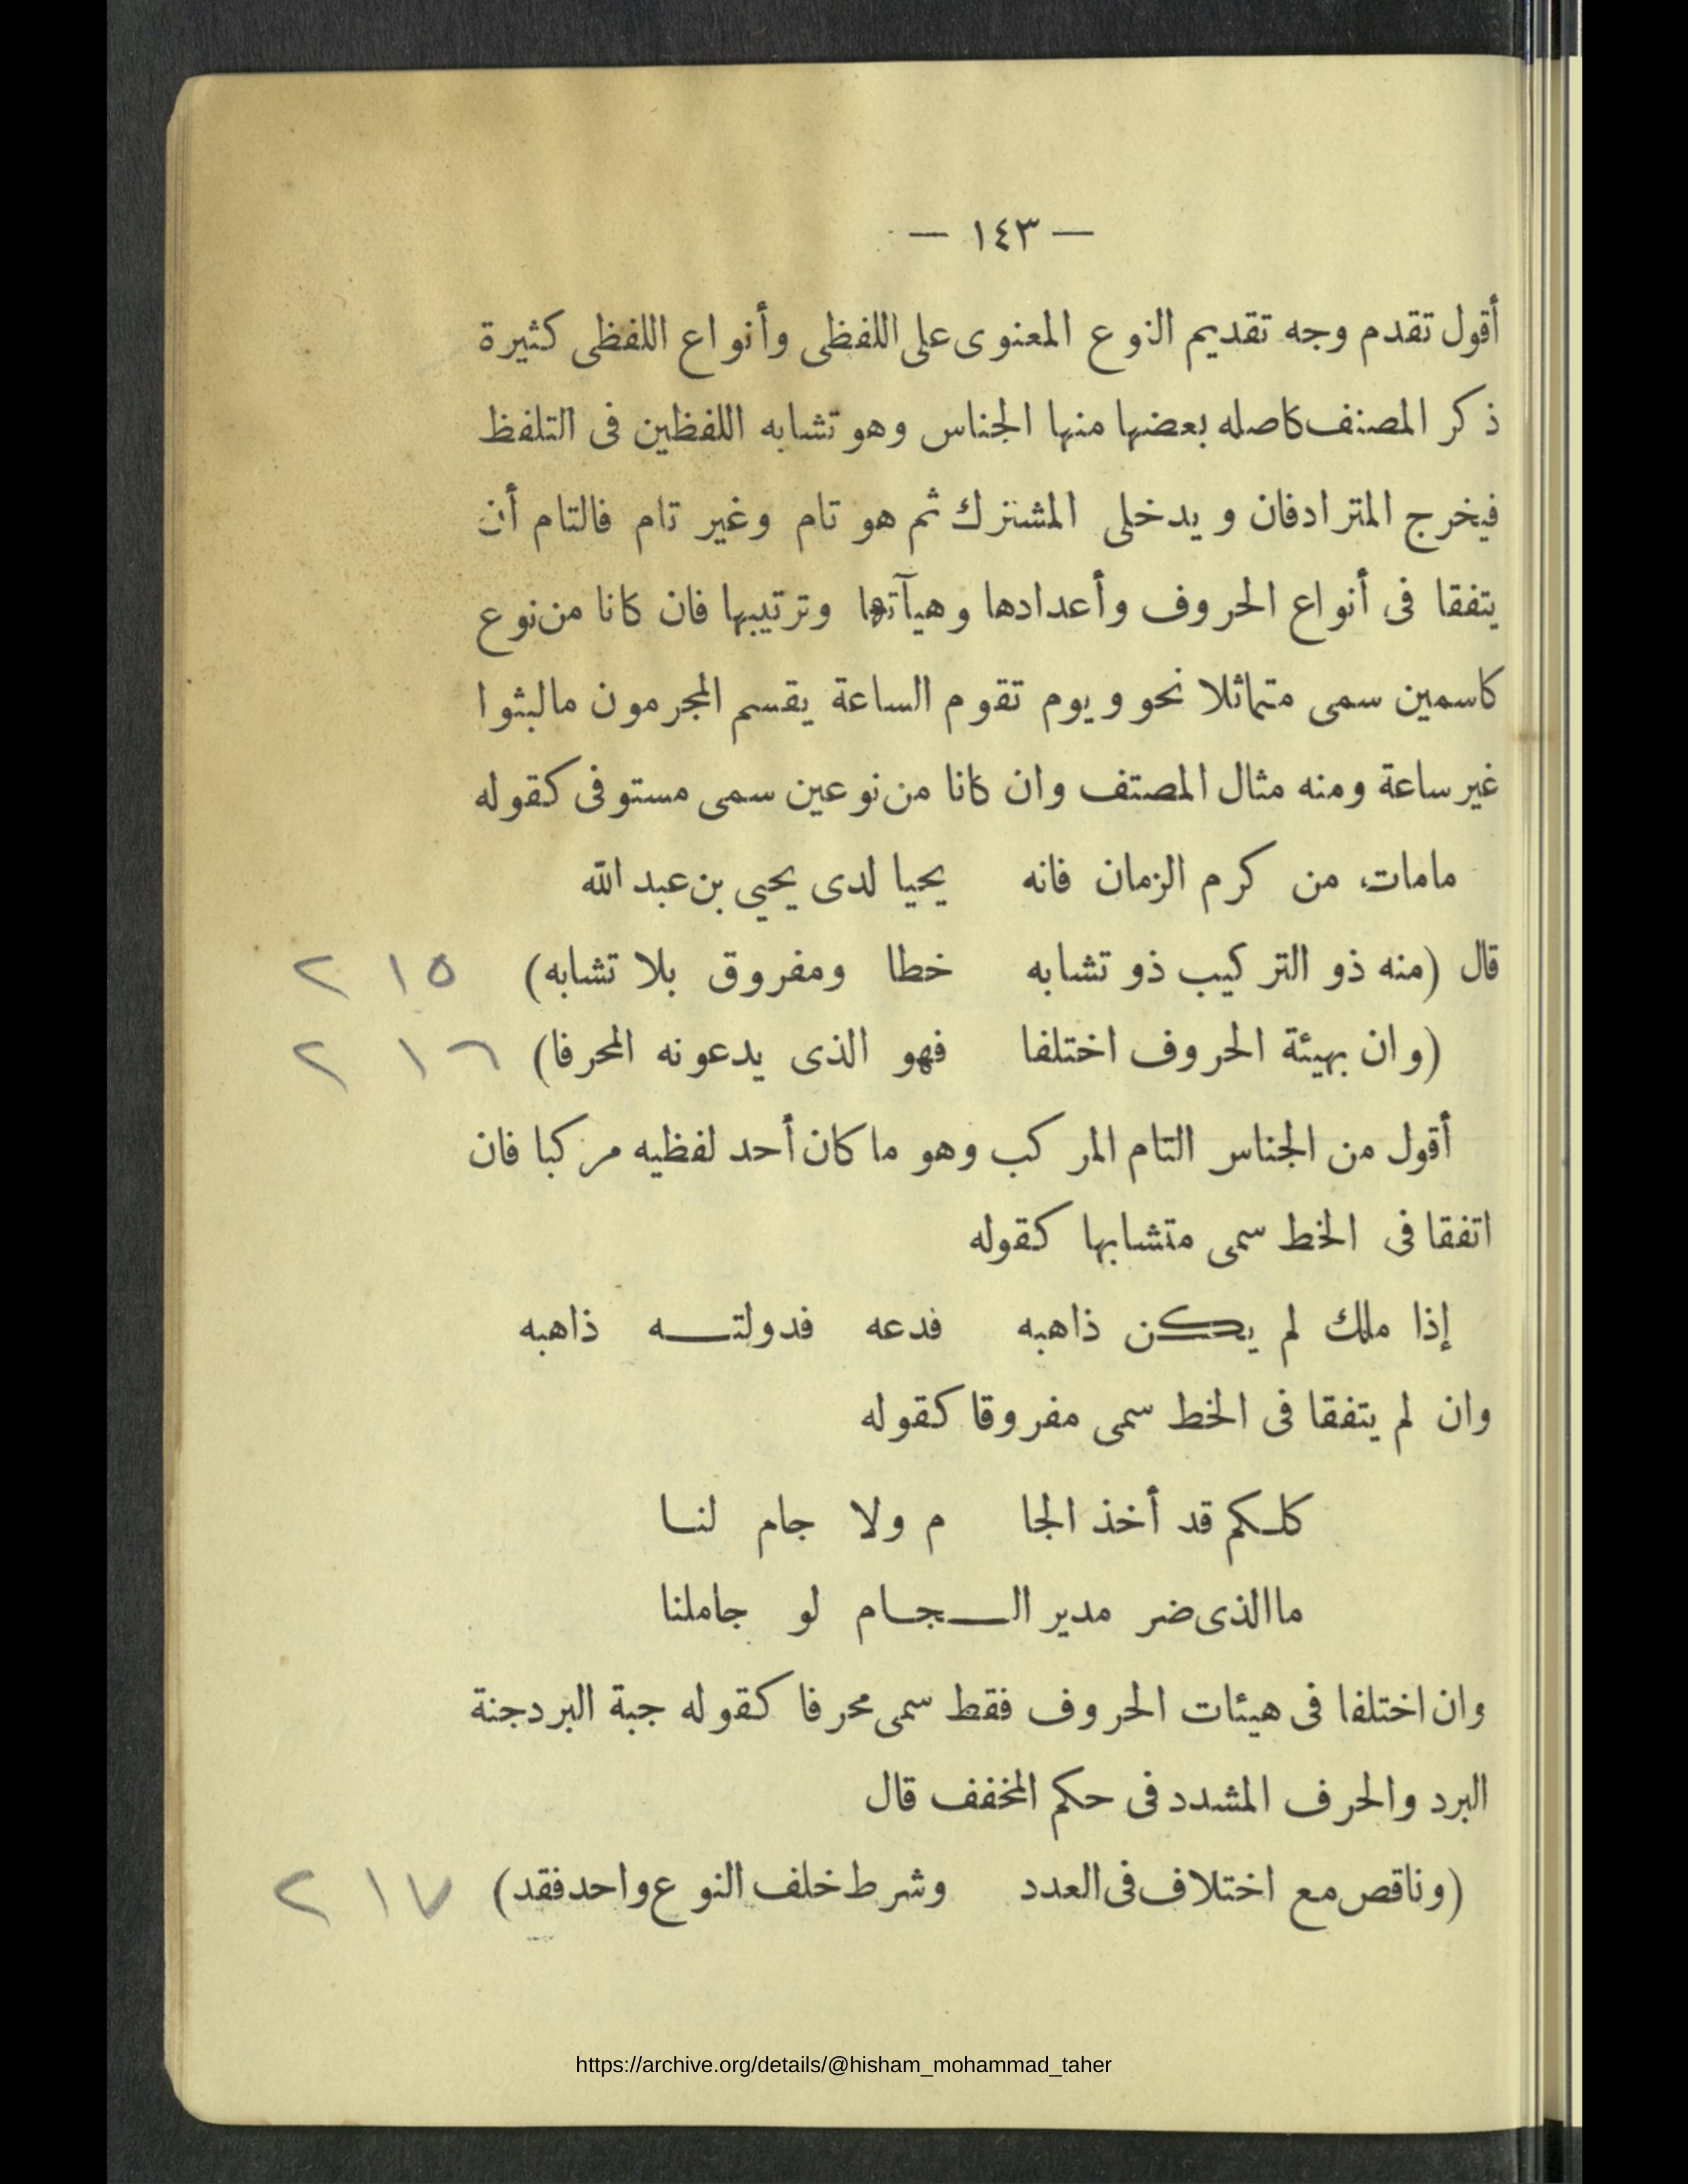 — ١٤٣ —
أقول تقدم وجه تقديم النوع المعنوى على اللفظى وأنواع اللفظى كثيرة
ذكر المصنف كاصله بعضها منها الجناس وهو تشابه اللفظين فى التلفظ
فيخرج المترادفان ويدخلى المشترك ثم هو تام وغير تام فالتام أن
يتفقا فى أنواع الحروف وأعدادها وهيآتها وترتيبها فان كانا من نوع
كاسمين سمى متماثلا نحو ويوم تقوم الساعة يقسم المجرمون مالبثوا
غير ساعة ومنه مثال المصتف وان كانا من نوعين سمى مستوفى كقوله
مامات من كرم الزمان فانه يحيا لدى يحيي بن عبد الله
قال (منه ذو التركيب ذو تشابه خطا ومفروق بلا تشابه) ٢١٥
(وان بهيئة الحروف اختلفا فهو الذى يدعونه المحرفا) ٢١٦
أقول من الجناس التام المركب وهو ما كان أحد لفظيه مركبا فان
اتفقا فى الخط سمى متشابها كقوله
إذا ملك لم يكن ذاهبه فدعه فدولتـــه ذاهبه
وان لم يتفقا فى الخط سمى مفروقا كقوله
كلـكم قد أخذ الجا م ولا جام لنـا
ما الذى ضر مدير الــجـام لو جاملنا
وان اختلفا فى هيئات الحروف فقط سمى محرفا كقوله جبة البرد جنة
البرد والحرف المشدد فى حكم المخفف قال
(وناقص مع اختلاف فى العدد وشرط خلف النوع واحد فقد) ٢١٧
https://archive.org/details/@hisham_mohammad_taher